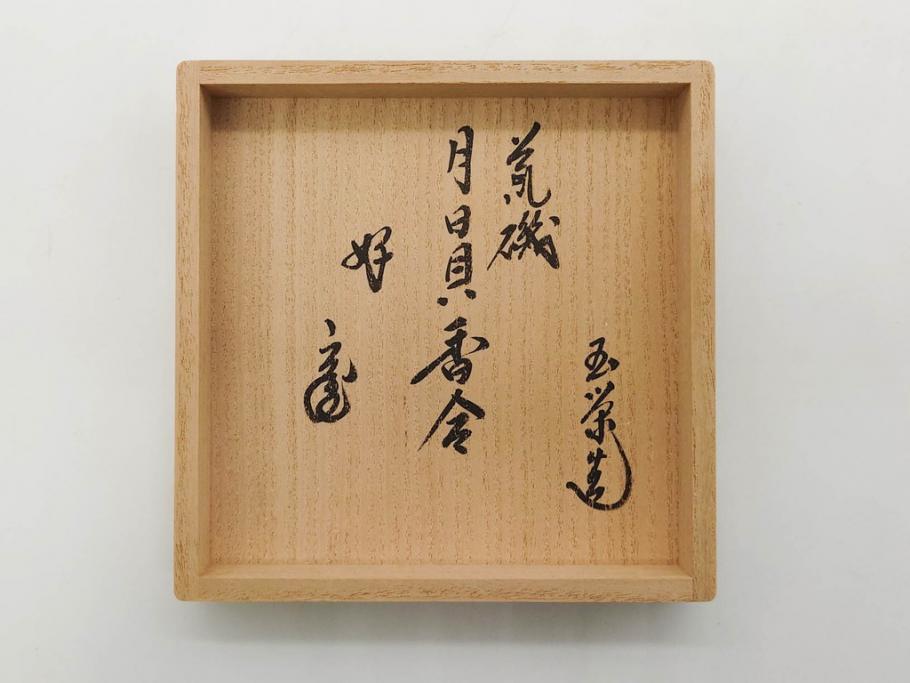 玉栄造
荒磯
月日貝香合
好